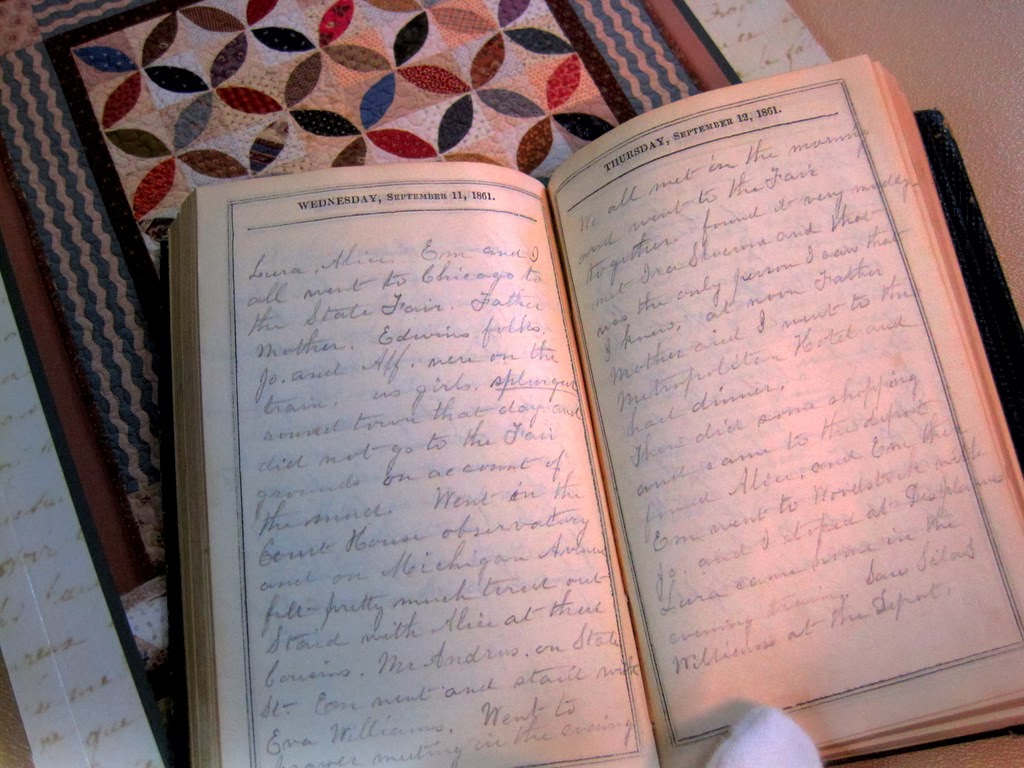 WEDNESDAY, SEPTEMBER 11, 1861.
Lura, Alice. Em and I
all went to Chicago to
the State Fair. Father
Mother. Edwins folks,
Jo. and Aff. were on the
train. us girls. splurged
round town that day and
did not go to the Fair
grounds on account of
the mud. Went in the
Court House observatory
and on Michigan Avenue
felt pretty much tired out
Staid with Alice at their
Cousins. Mr. Andrus. on State
St. Em went and staid with
Eva Williams. Went to
prayer meeting in the evening
THURSDAY, SEPTEMBER 12, 1861.
We all met in the morning
and went to the Fair
together. found it very muddy
met Ira Severns and that
was the only person I saw that
I knew. at noon Father
Mother and I went to the
Metropolitan Hotel and
had dinner.
Then did some shopping
and came to the depot
found Alice, and Em there
Em went to Woodstock with
Jo. and I stoped at Desplaines
Lura came home in the
evening train. Saw Silas
Williams at the Depot.